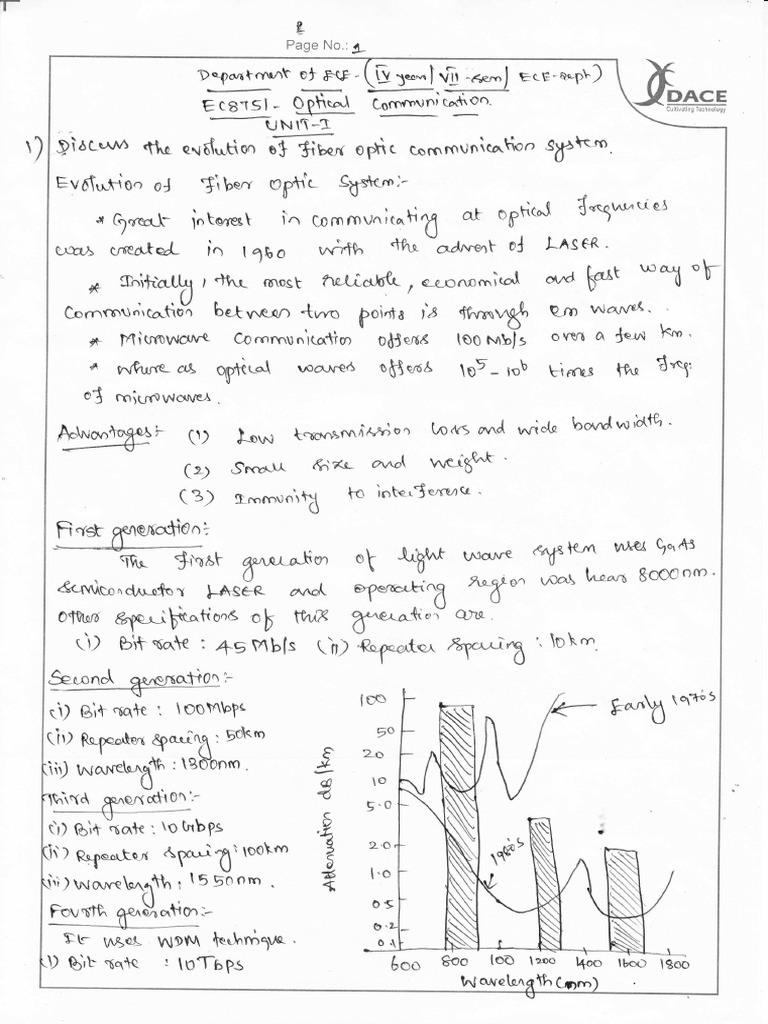 2
Page No.: 1
DACE
Cultivating Technology
Department of ECE - (IV year / VII - sem / ECE-dept)
EC8751 - Optical Communication.
UNIT-I
1) Discuss the evolution of fiber optic communication system.
Evolution of Fiber Optic System:-
* Great interest in communicating at optical frequencies
was created in 1960 with the advent of LASER.
* Initially, the most reliable, economical and fast way of
communication between two points is through em waves.
* Microwave Communication offers 100 Mb/s over a few km.
* where as optical waves offers 10⁵ - 10⁶ times the freq:
of microwaves.
Advantages:- (1) Low transmission loss and wide bandwidth.
(2) Small size and weight.
(3) Immunity to interference.
First generation:-
The first generation of light wave system uses GaAs
semiconductor LASER and operating region was near 8000nm.
Other specifications of this generation are.
(i) Bit rate : 45 Mb/s (ii) Repeater spacing : 10km.
Second generation:-
(i) Bit rate : 100Mbps
(ii) Repeater spacing : 50km
(iii) Wavelength : 1300nm.
Third generation:-
(i) Bit rate : 10 Gbps
(ii) Repeater spacing : 100km
(iii) Wavelength : 1550nm.
Fourth generation:-
It uses WDM technique.
(i) Bit rate : 10Tbps
Attenuation dB/km
100
50
20
10
5.0
2.0
1.0
0.5
0.2
0.1
Early 1970's
1980's
600 800 100 1200 1400 1600 1800
Wavelength (nm)